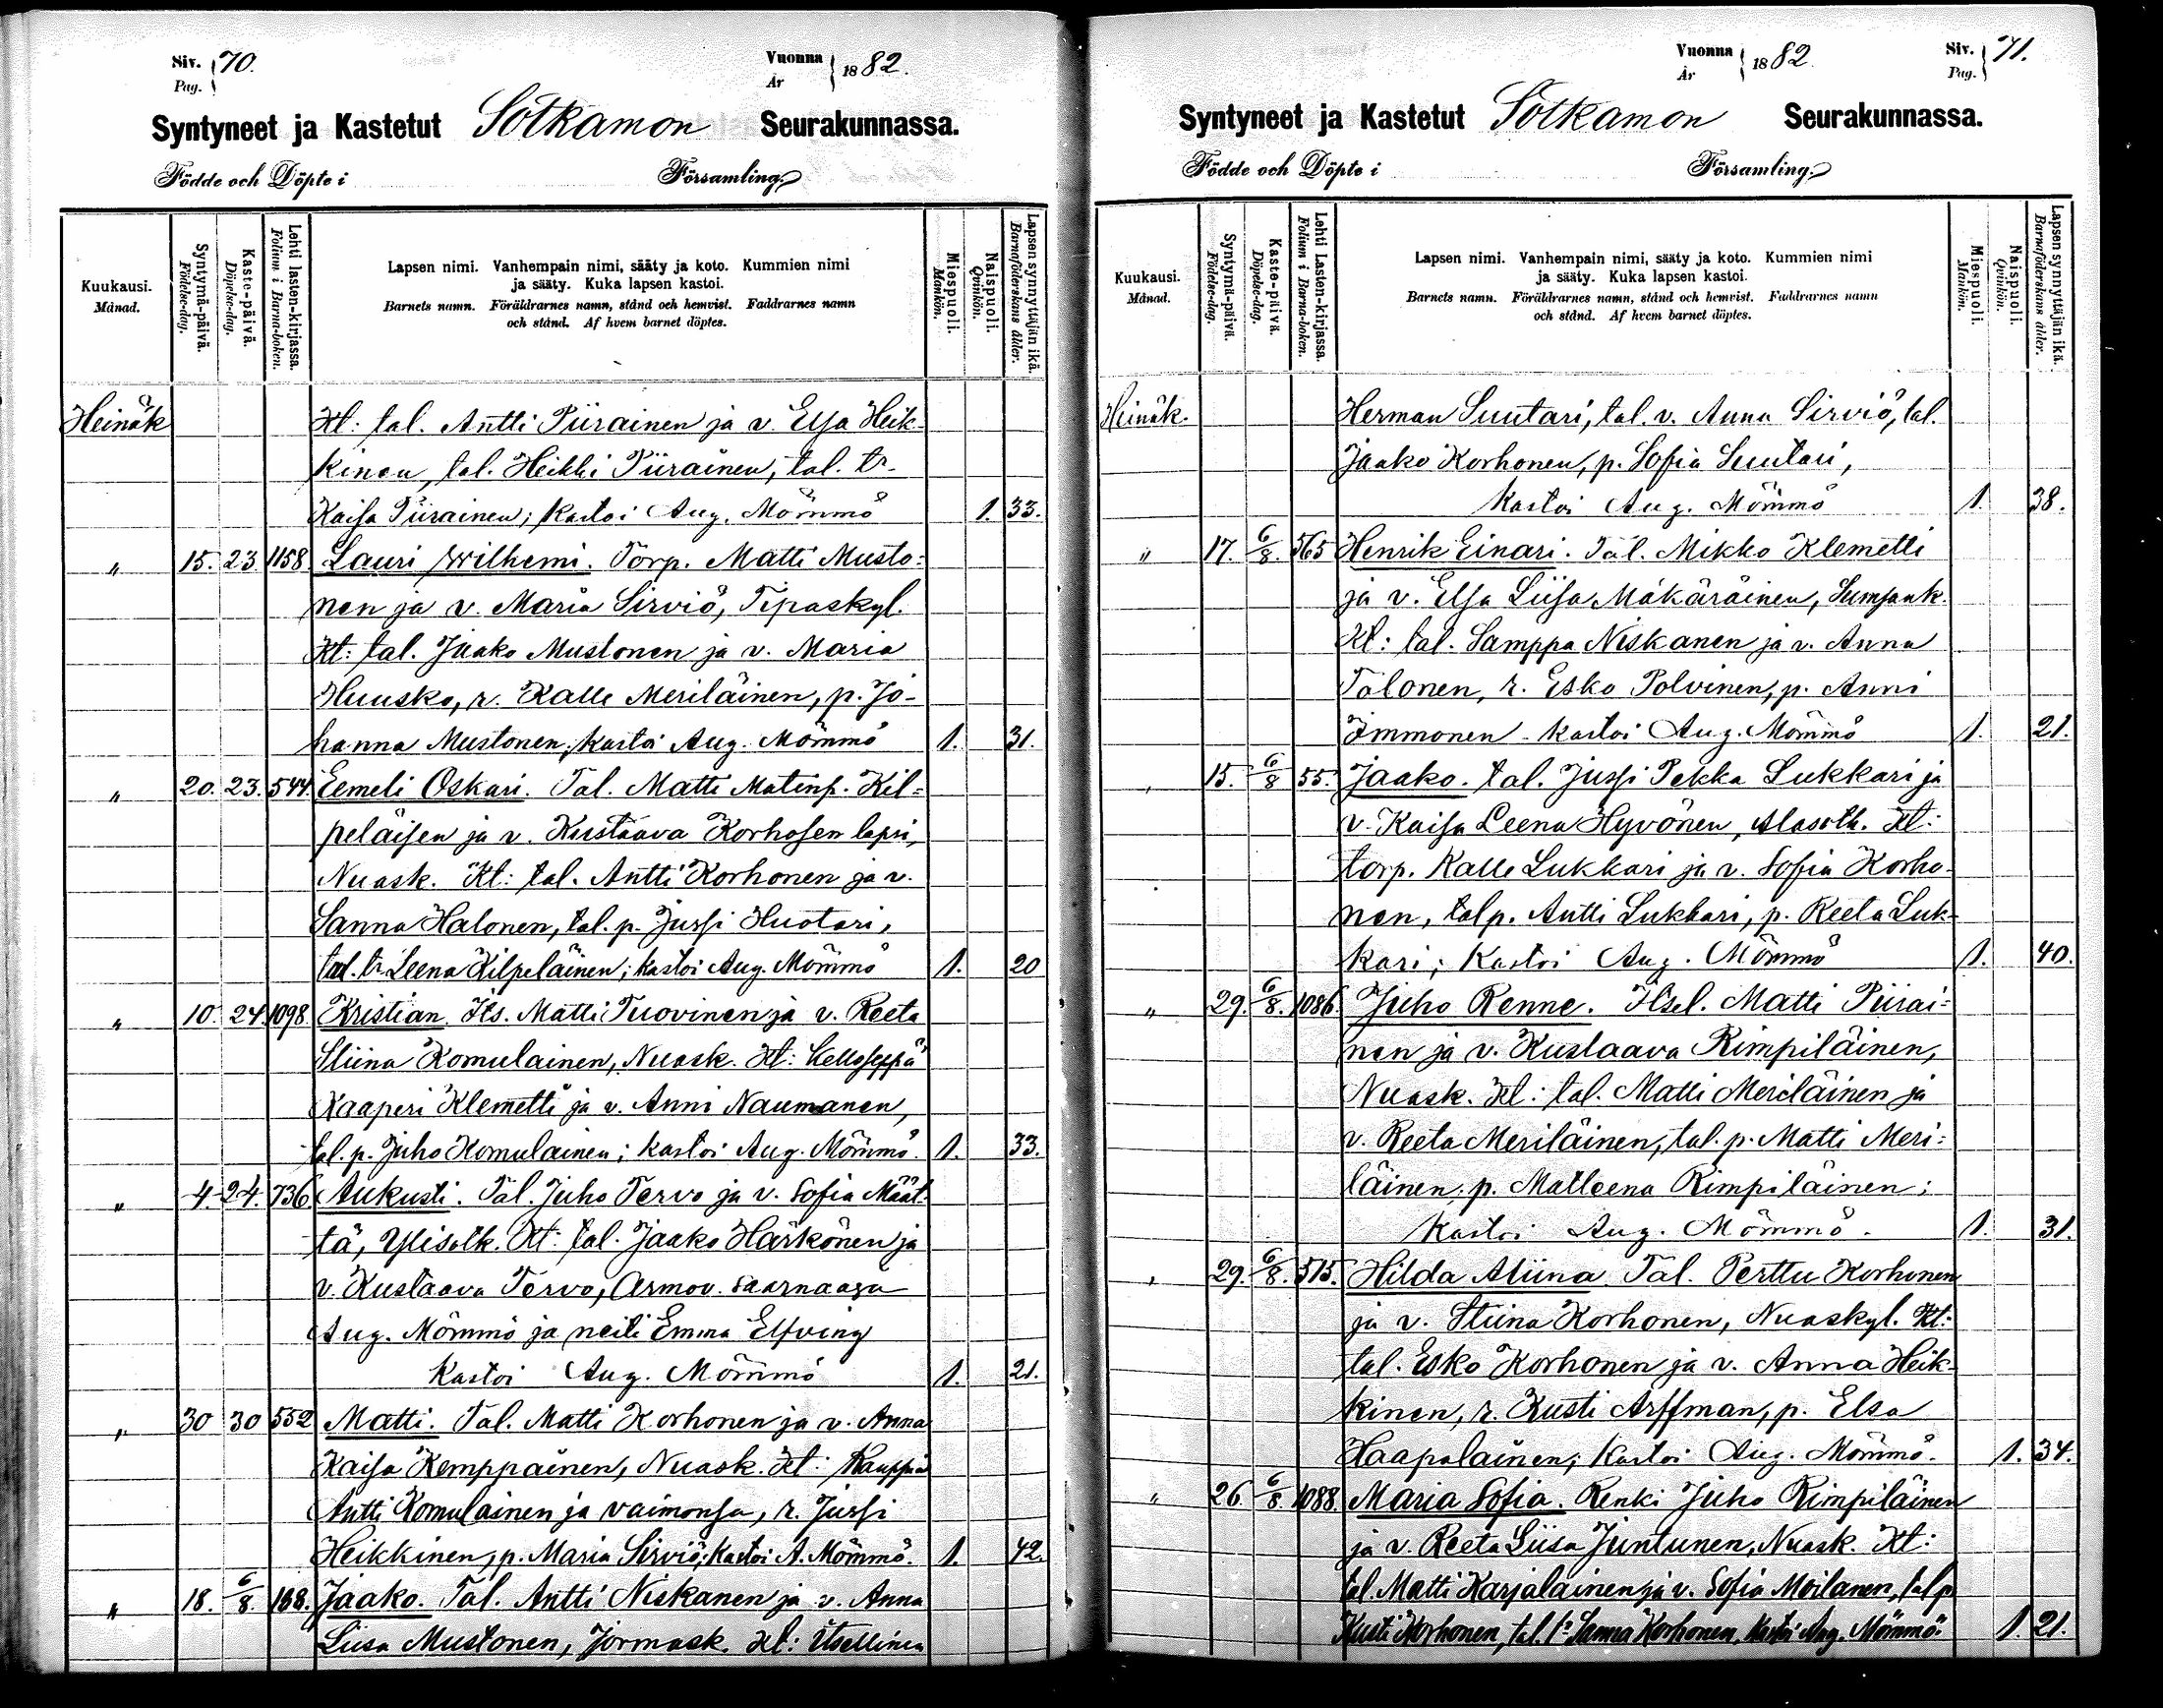 Siv. 70.
Pag.
Vuonna 1882.
År
Syntyneet ja Kastetut Sotkamon Seurakunnassa.
Födde och Döpte i Församling.
Kuukausi.
Månad.
Syntymä-päivä.
Födelse-dag.
Kaste-päivä.
Döpelse-dag.
Lehti lasten-kirjassa.
Folium i Barna-boken.
Lapsen nimi. Vanhempain nimi, sääty ja koto. Kummien nimi
ja sääty. Kuka lapsen kastoi.
Barnets namn. Föräldrarnes namn, stånd och hemvist. Faddrarnes namn
och stånd. Af hvem barnet döptes.
Miespuoli.
Mankön.
Naispuoli.
Qvinkön.
Lapsen synnyttäjän ikä.
Barnaföderskans ålder.
Heinäk Kt: tal. Antti Piirainen ja v. Elsa Heik-
kinen, tal. Heikki Piirainen, tal. tr.
Kaisa Piirainen; kastoi Aug. Mömmö 1. 33.
" 15. 23 1158 Lauri Wilhemi. Torp. Matti Musto-
nen ja v. Maria Sirviö, Tipaskyl.
Kt: tal. Jaako Mustonen ja v. Maria
Huusko, r. Kalle Meriläinen, p. Jo-
hanna Mustonen; kastoi Aug. Mömmö 1. 31.
" 20. 23. 544. Eemeli Oskari. Tal. Matti Matinp. Kil-
peläisen ja v. Kustaava Korhosen lapsi,
Nuask. Kt: tal. Antti Korhonen ja v.
Sanna Halonen, tal. p. Jussi Huotari,
tal. tr. Leena Kilpeläinen; kastoi Aug. Mömmö 1. 20
" 10. 24. 1098 Kristian. Its. Matti Tuovinen ja v. Reeta
Stiina Komulainen, Nuask. Kt: Kelloseppä
Kaaperi Klemetti ja v. Anni Naumanen,
tal. p. Juho Komulainen; kastoi Aug. Mömmö. 1. 33.
" 4. 24. 736. Aukusti. Tal. Juho Tervo ja v. Sofia Määt-
tä, Ylisotk. Kt: tal. Jaako Härkönen ja
v. Kustaava Tervo, Armov. saarnaaja
Aug. Mömmö ja neiti Emma Elfving
Kastoi Aug. Mömmö 1. 21.
" 30 30 552 Matti. Tal. Matti Korhonen ja v. Anna
Kaisa Kemppainen, Nuask. Kt: Kauppa
Antti Komulainen ja vaimonsa, r. Jussi
Heikkinen, p. Maria Sirviö; kastoi A. Mömmö. 1. 42.
" 18. 6/8. 188. Jaako. Tal. Antti Niskanen ja v. Anna
Liisa Mustonen, Jormask. Kt: Itsellinen
Vuonna 1882
År
Siv. 71.
Pag.
Syntyneet ja Kastetut Sotkamon Seurakunnassa.
Födde och Döpte i Församling.
Kuukausi.
Månad.
Syntymä-päivä.
Födelse-dag.
Kaste-päivä.
Döpelse-dag.
Lehti Lasten-kirjassa.
Folium i Barna-boken.
Lapsen nimi. Vanhempain nimi, sääty ja koto. Kummien nimi
ja sääty. Kuka lapsen kastoi.
Barnets namn. Föräldrarnes namn, stånd och hemvist. Faddrarnes namn
och stånd. Af hvem barnet döptes.
Miespuoli.
Mankön.
Naispuoli.
Qvinkön.
Lapsen synnyttäjän ikä.
Barnaföderskans ålder.
Heinäk. Herman Suutari, tal. v. Anna Sirviö, tal.
Jaako Korhonen, p. Sofia Suutari,
Kastoi Aug. Mömmö 1. 38.
" 17. 6/8. 565 Henrik Einari. Tal. Mikko Klemetti
ja v. Elsa Liisa Mäkäräinen, Sumsank.
Kt: tal. Samppa Niskanen ja v. Anna
Tolonen, r. Esko Polvinen, p. Anni
Immonen - kastoi Aug. Mömmö 1. 21.
" 15. 6/8 55. Jaako. tal. Jussi Pekka Lukkari ja
v. Kaisa Leena Hyvönen, Alasotk. Kt:
torp. Kalle Lukkari ja v. Sofia Korho-
nen, tal p. Antti Lukkari, p. Reeta Luk-
kari; Kastoi Aug. Mömmö 1. 40.
" 29. 6/8. 1086. Juho Renne. Itsel. Matti Piirai-
nen ja v. Kustaava Rimpiläinen,
Nuask. Kt: tal. Matti Meriläinen ja
v. Reeta Meriläinen, tal. p. Matti Meri-
läinen, p. Matleena Rimpiläinen;
Kastoi Aug. Mömmö. 1. 31.
" 29. 6/8. 515. Hilda Aliina. Tal. Perttu Korhonen
ja v. Stiina Korhonen, Nuaskyl. Kt:
tal. Esko Korhonen ja v. Anna Heik-
kinen, r. Kusti Arffman, p. Elsa
Haapalainen; Kastoi Aug. Mömmö. 1. 34.
" 26. 6/8. 1088 Maria Sofia. Renki Juho Rimpiläinen
ja v. Reeta Liisa Juntunen, Nuask. Kt:
tal. Matti Karjalainen ja v. Sofia Moilanen, tal p
Kusti Korhonen, tal. tr Sanna Korhonen, kastoi Aug. Mömmö. 1. 21.